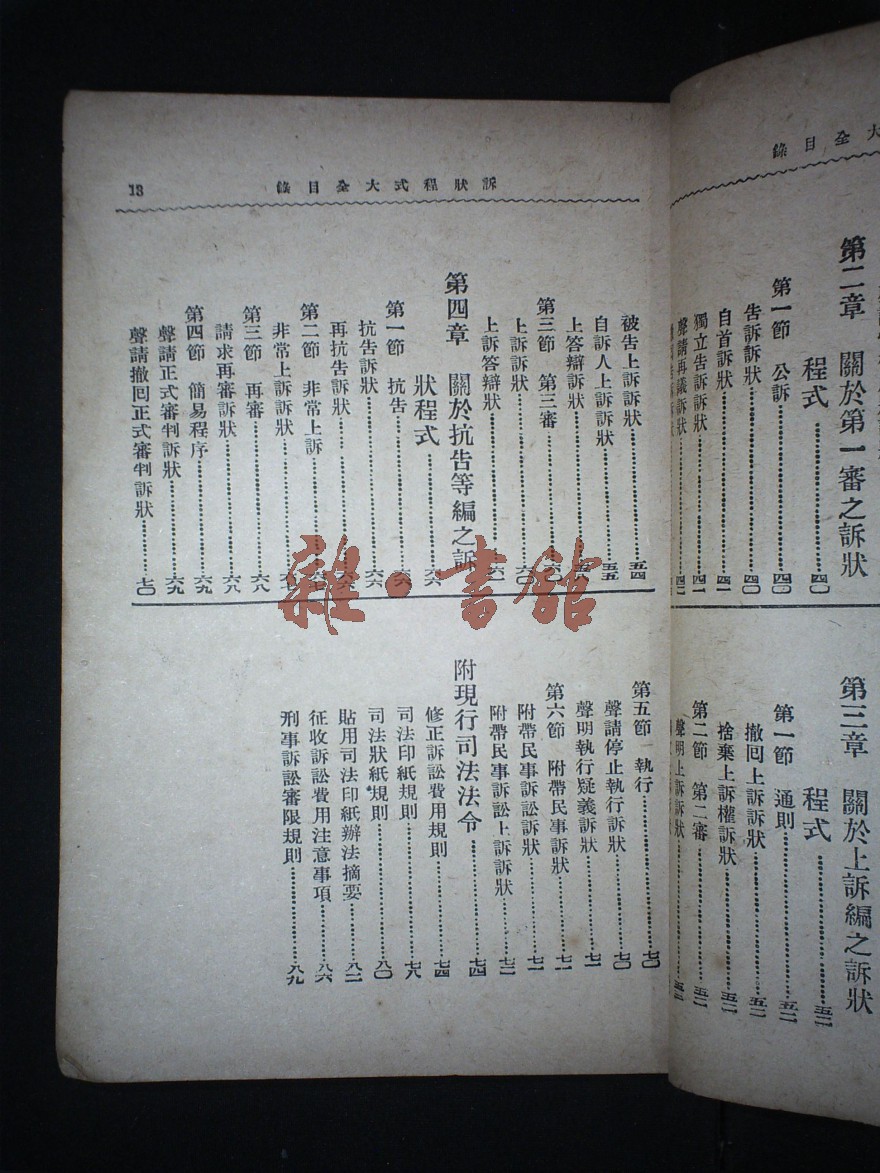 錄目全大
第二章 關於第一審之訴狀
程式……四〇
第一節 公訴……四〇
告訴訴狀……四〇
自首訴狀……四一
獨立告訴訴狀……四一
聲請再議訴狀……四二
第三章 關於上訴編之訴狀
程式……五二
第一節 通則……五二
撤回上訴訴狀……五二
捨棄上訴權訴狀……五二
第二節 第二審……五二
聲明上訴訴狀……五三
13
錄目全大式程狀訴
被告上訴訴狀……五四
自訴人上訴訴狀……五五
上答辯訴狀……五八
第三節 第三審……六〇
上訴訴狀……六〇
上訴答辯狀……六一
第四章 關於抗告等編之訴
狀程式……六六
第一節 抗告……六六
抗告訴狀……六六
再抗告訴狀……六六
第二節 非常上訴
非常上訴訴狀
第三節 再審……六八
請求再審訴狀……六八
第四節 簡易程序……六九
聲請正式審判訴狀……六九
聲請撤回正式審判訴狀……七〇
第五節 執行……七〇
聲請停止執行訴狀……七〇
聲明執行疑義訴狀……七一
第六節 附帶民事訴狀……七一
附帶民事訴訟訴狀……七一
附帶民事訴訟上訴訴狀……七二
附現行司法法令……七四
修正訴訟費用規則……七四
司法印紙規則……七八
司法狀紙規則……八〇
貼用司法印紙辦法摘要……八二
征收訴訟費用注意事項……八六
刑事訴訟審限規則……八九
雜·書館